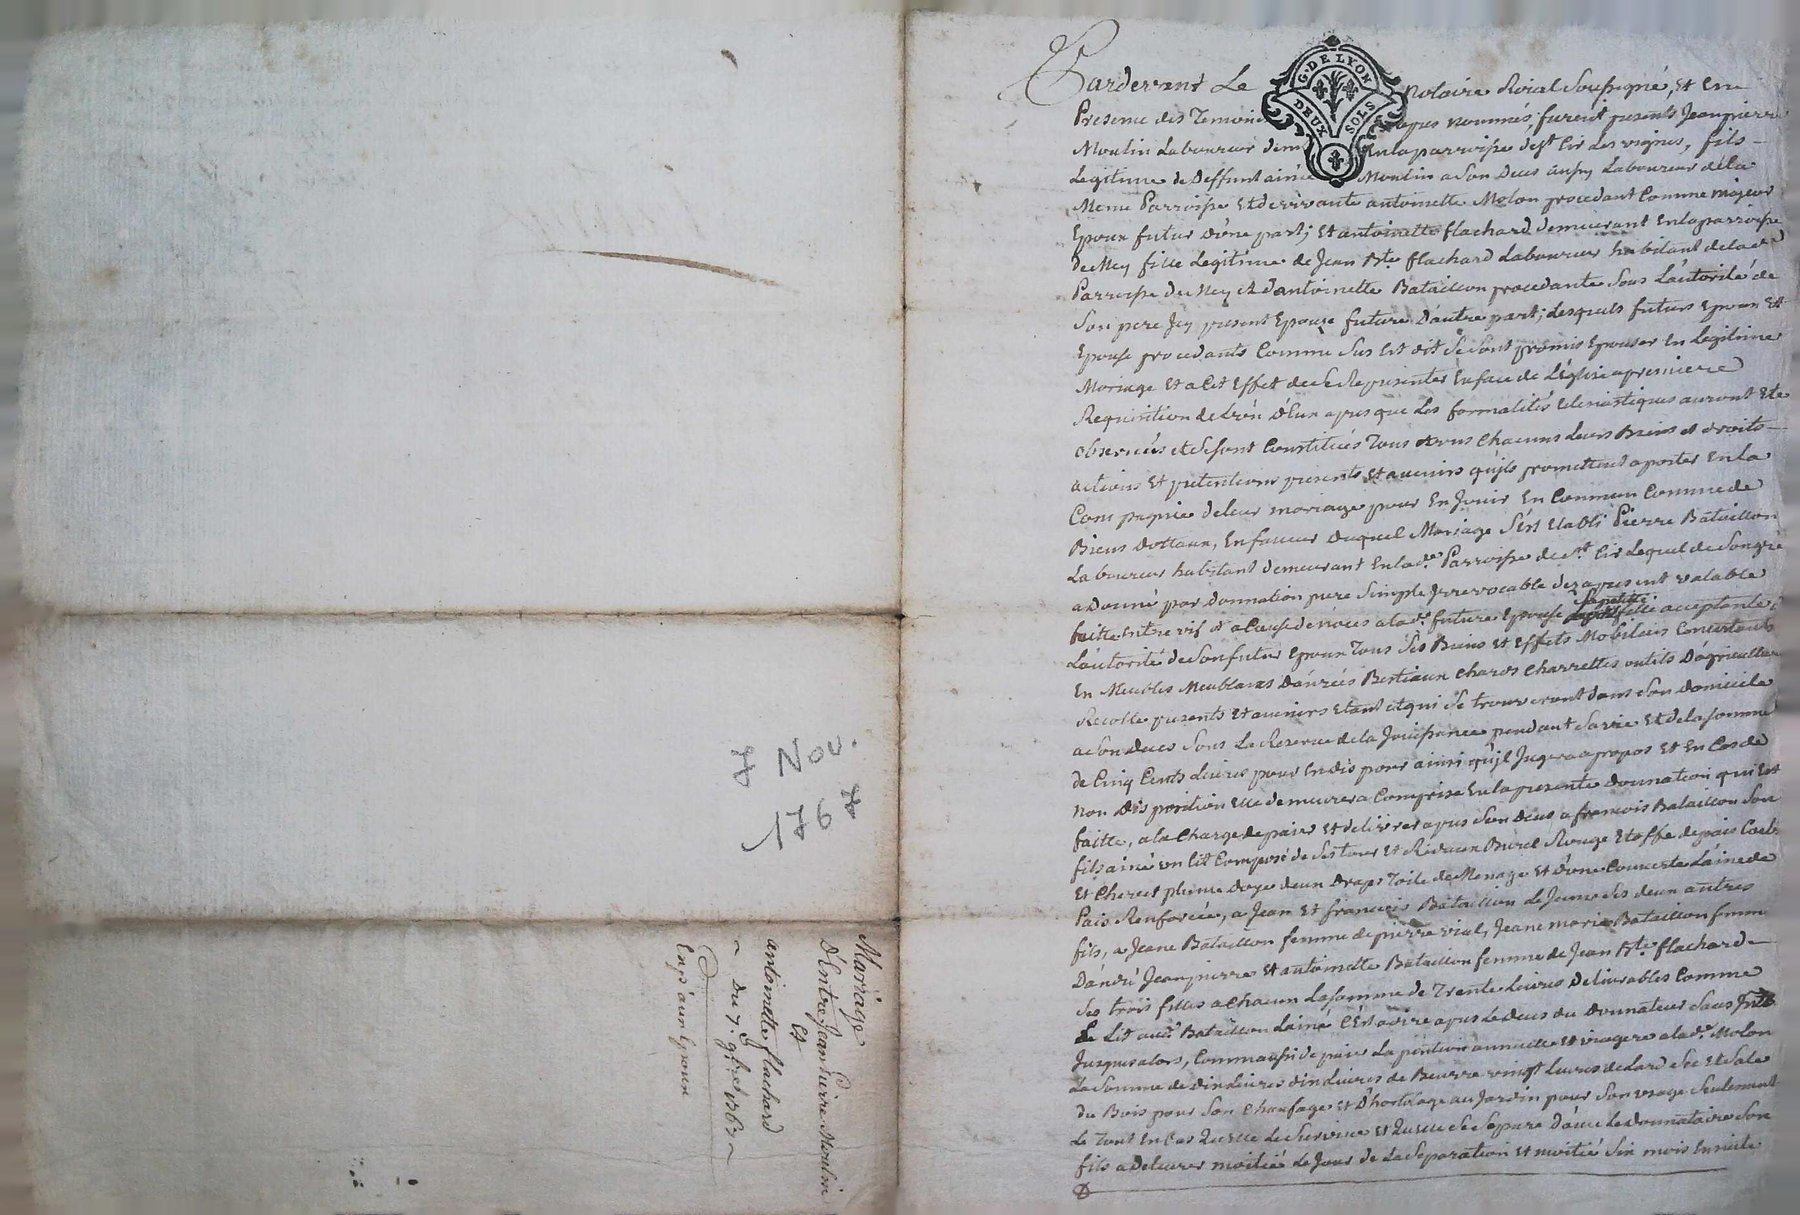 G. DE LYON
DEUX SOLS
Pardevant Le notaire Roial Soussigné, Et En
Presence des Temoins apres nommés, furent presents Jeanpierre
Moulin Laboureur dem Enlaparroisse de st Cir Les vignes, fils
Legitime de Deffunt aimé Moulin a Son Deces aussy Laboureur dela
Meme Parroisse Et de vivante antoinette Molon procedant Comme majeur
Epoux futur d'une part; Et antoinette flachard demeurant Enlaparroisse
de fille Legitime de Jean Bte flachard Laboureur habitant delad
Parroisse de et d'antoinette Bataillon procedante Sous L'autorité de
Son pere Icy present Epouze future D'autre part; desquels futurs Epoux Et
Epouse procedants Comme Sus Est dit Se Sont promis Epouser En Legitime
Mariage Et a Cet Effet de Se Representer En face de L'Eglise a premiere
Requisition de L'un d'Eux apres que Les formalités Eclesiastiques auront Eté
observées et Se Sont Constitués Tous Chacuns Leurs Biens et droits
actions Et pretentions presents Et avenirs qu'ils promettent aporter Enla
Compagnie deleur mariage pour En Jouir En Commun Comme de
Biens Dottaux, En faveur Duquel Mariage S'est Etabli Pierre Bataillon
Laboureur habitant demeurant Enlade Parroisse de St Cir Lequel de Songré
a Donné par Donnation pure Simple Irrevocable dez a present valable
faitte Entre vif a Cause de noces alade future Epouse Sa petitte fille acceptante
L'autorité de Son futur Epoux Tous Ses Biens Et Effets Mobiliers
En Meubles Meublants Danrées Bestiaux Chars Charrettes outils D'agriculture
Recolte presents Et avenirs Etant et qui Se trouveront dans Son Domicile
a Son deces Sous La Reserve dela Jouissance pendant Sa vie Et dela somme
de Cinq Cents Livres pour En dis poser ainsi qu'il Jugera a propos Et En Cas de
non Disposition Elle demeurera Comprise Enla presente Donnation qui Est
faitte, a la Charge de paier Et delivrer apres Son deces a francois Bataillon Son
fils ainé un Lit Composé de Ses tours Et Rideaux Burel Rouge Etoffe de pais
Et Chevet plume d'oye deux Draps Toile de Menage Et d'une Couverte Laine de
Pais Renforcée, a Jean Et francois Bataillon Le Jeune Ses deux autres
fils, a Jeane Bataillon femme de pierre vial, Jeane marie Bataillon femme
D'andré Jeanpierre Et antoinette Bataillon femme de Jean Bte flachard
Ses trois filles a Chacun La somme de Trente Livres Delivrables Comme
Le Lit aud. Bataillon L'ainé C'Est adire apres Le deces du Donnateur Sans
Jusques alors, Comm'aussi de paier La pention annuelle Et viagere alade Molon
La Somme de dix Livres dix Livres de Beurre vingt Livres de Lard Sec Et Salé
du Bois pour Son Chaufage Et D'hortolage au Jardin pour Son usage Seulement
Le Tout En Cas Qu'elle Le Survive Et Qu'elle Se Separe D'avec Le Donnataire Son
fils a Delivrer moitié Le Jour de La Separation Et moitié Six mois Ensuite
7 Nov.
1767
Mariage
D'Entre Jeanpierre Moulin
Et
antoinette flachard
Du 7. 9bre 1767